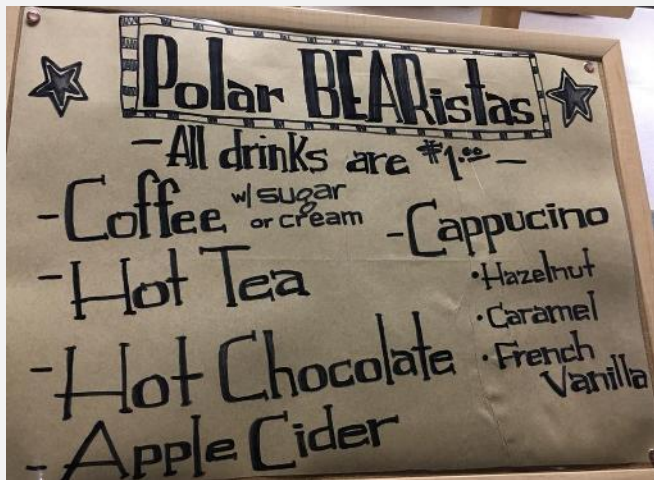 Polar BEARistas
-All drinks are $1.00-
-Coffee w/ sugar
or cream
-Hot Tea
-Hot Chocolate
-Apple Cider
-Cappucino
•Hazelnut
•Caramel
•French
Vanilla